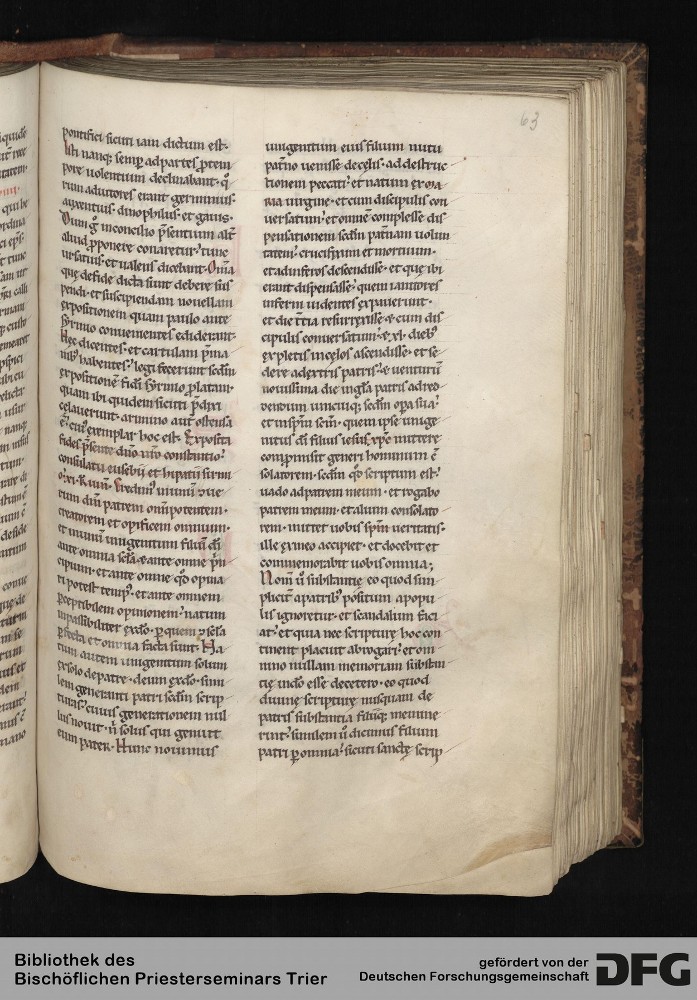 63
pontifici sicuti iam dictum est.
Isti nanq; semp ad partes ptem
pore uolentium declinabant. q̄
rum adiutores erant germinius.
auxentius. dimophilus. et gaius.
Dum g̊ in concilio p̄sentium alt̄
aliud pponere conaretur. tunc
ursatius et ualens dicebant. Om̄ia
quę de fide dicta sunt debere sus
pendi. et suscipiendam nouellam
expositionem quam paulo ante
syrmio conuenientes ediderant.
Hęc dicentes. et cartulam p̄ ma
nib' habentes. legi fecerunt scd̄m
expositionē fidei syrmio platam.
quam ibi quidem sicuti p̄dixi
celauerunt. arimino aut̄ ostensa
ē. cui' exemplar hoc est. Exposita
fides p̄sente dn̄o nr̄o constantio.
consulatu eusebii et hipatii sirmi
Credim' in unū uer
rum dm̄ patrem om̄ipotentem.
creatorem et opificem omnium.
et in unū unigenitum filiū dī
ante omnia scl̄a. et ante omne p̄n
cipium. et ante omne qd̄ opina
ri potest temp'. et ante omnem
pceptibilem opinionem. natum
inpassibiliter ex dō. p quem et scl̄a
pfecta et omnia facta sunt. Na
tum autem unigenitum solum
ex solo de patre. deum ex dō. simi
lem generanti patri scd̄m scrip
turas. cuius generationem nul
lus nouit. n̄ solus qui genuit
eum pater. Hunc nouimus
unigenitum eius filium nutu
patno uenisse de cęlis. ad destruc
tionem peccati. et natum ex ma
ria uirgine. et cum discipulis con
uersatum. et omnē complesse dis
pensationem scd̄m patnam uolun
tatem. crucifixum et mortuum.
et ad inferos descendisse. et quę ibi
erant dispensasse. quem ianitores
inferni uidentes expauerunt.
et die tt̄ia resurrexisse. et cum dis
cipulis conuersatum. et xl. dieb'
expletis in cęlos ascendisse. et se
dere ad extris patris. et uenturū
nouissima die in gl̄a patris ad red
dendum unicuiq; scd̄m opera sua.
et in sp̄m sc̄m. quem ipse unige
nitus dī filius iesus xp̄c mittere
compromisit generi hominum
solatorem. scd̄m qd̄ scriptum est.
uado ad patrem meum. et rogabo
patrem meum. et alium consolato
rem mittet uobis sp̄m ueritatis.
ille ex meo accipiet. et docebit et
commemorabit uobis omnia;
Nom̄ ū substantię eo quod sim
plicit̄ a patrib' positum a popu
lis ignoretur. et scandalum faci
at. et quia nec scripturę hoc con
tinent placuit abrogari. et om
nino nullam memoriam substan
tię in dō esse de cetero. eo quod
diuinę scripturę nusquam de
patris substantia filiiq; memine
rint. similem ū dicimus filium
patri p omnia. sicuti sanctę scrip
Bibliothek des
Bischöflichen Priesterseminars Trier
gefördert von der
Deutschen Forschungsgemeinschaft
DFG